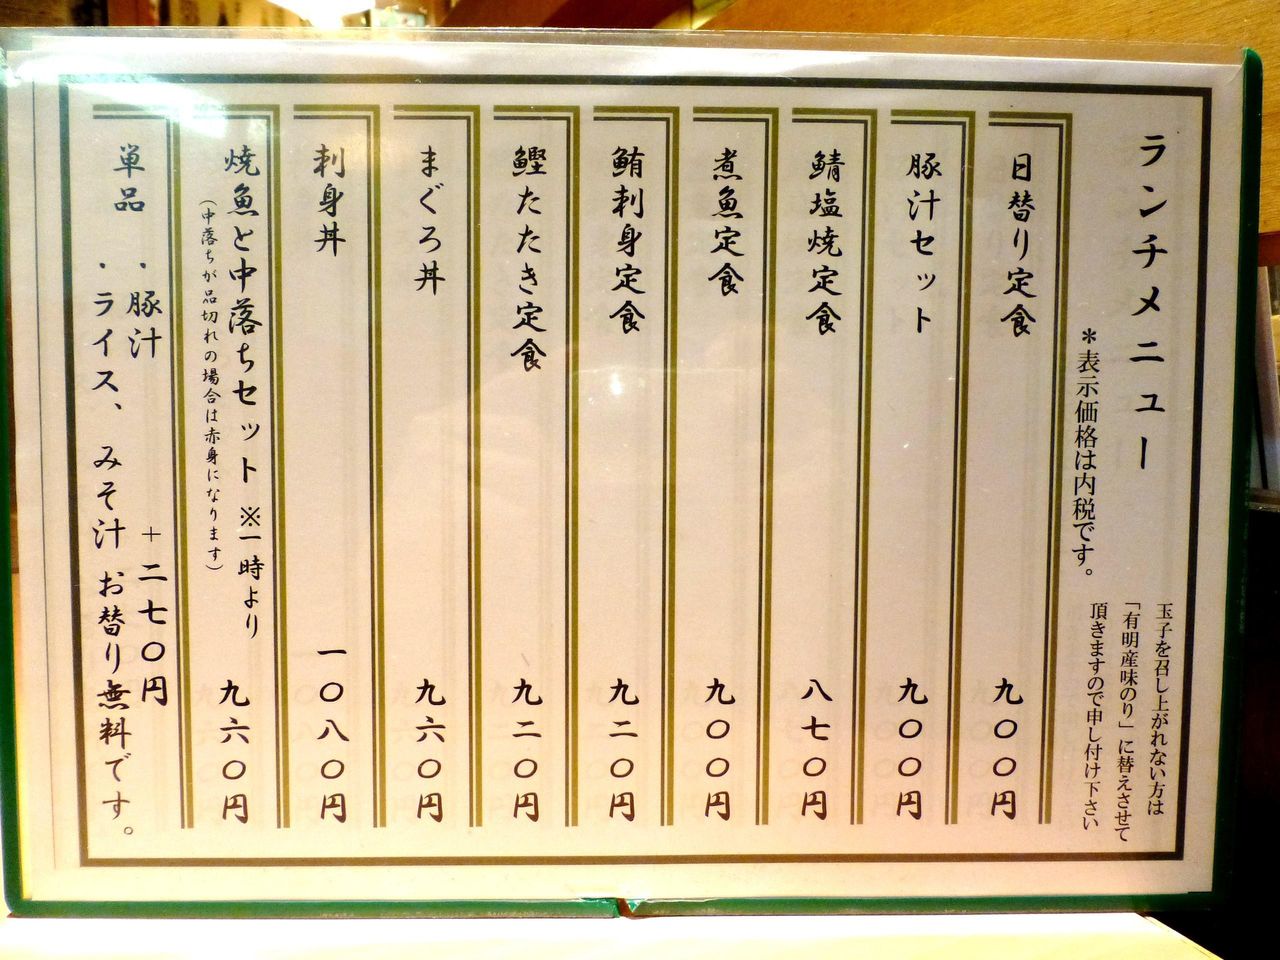 ランチメニュー
＊表示価格は内税です。
玉子を召し上がれない方は
「有明産味のり」に替えさせて
頂きますので申し付け下さい
日替り定食 九〇〇円
豚汁セット 九〇〇円
鯖塩焼定食 八七〇円
煮魚定食 九〇〇円
鮪刺身定食 九二〇円
鰹たたき定食 九二〇円
まぐろ丼 九六〇円
刺身丼 一〇八〇円
焼魚と中落ちセット ※一時より 九六〇円
（中落ちが品切れの場合は赤身になります）
単品 ・豚汁 ＋二七〇円
・ライス、みそ汁 お替り無料です。